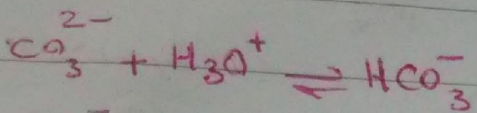 CO₃²⁻ + H₃O⁺ ⇌ HCO₃⁻